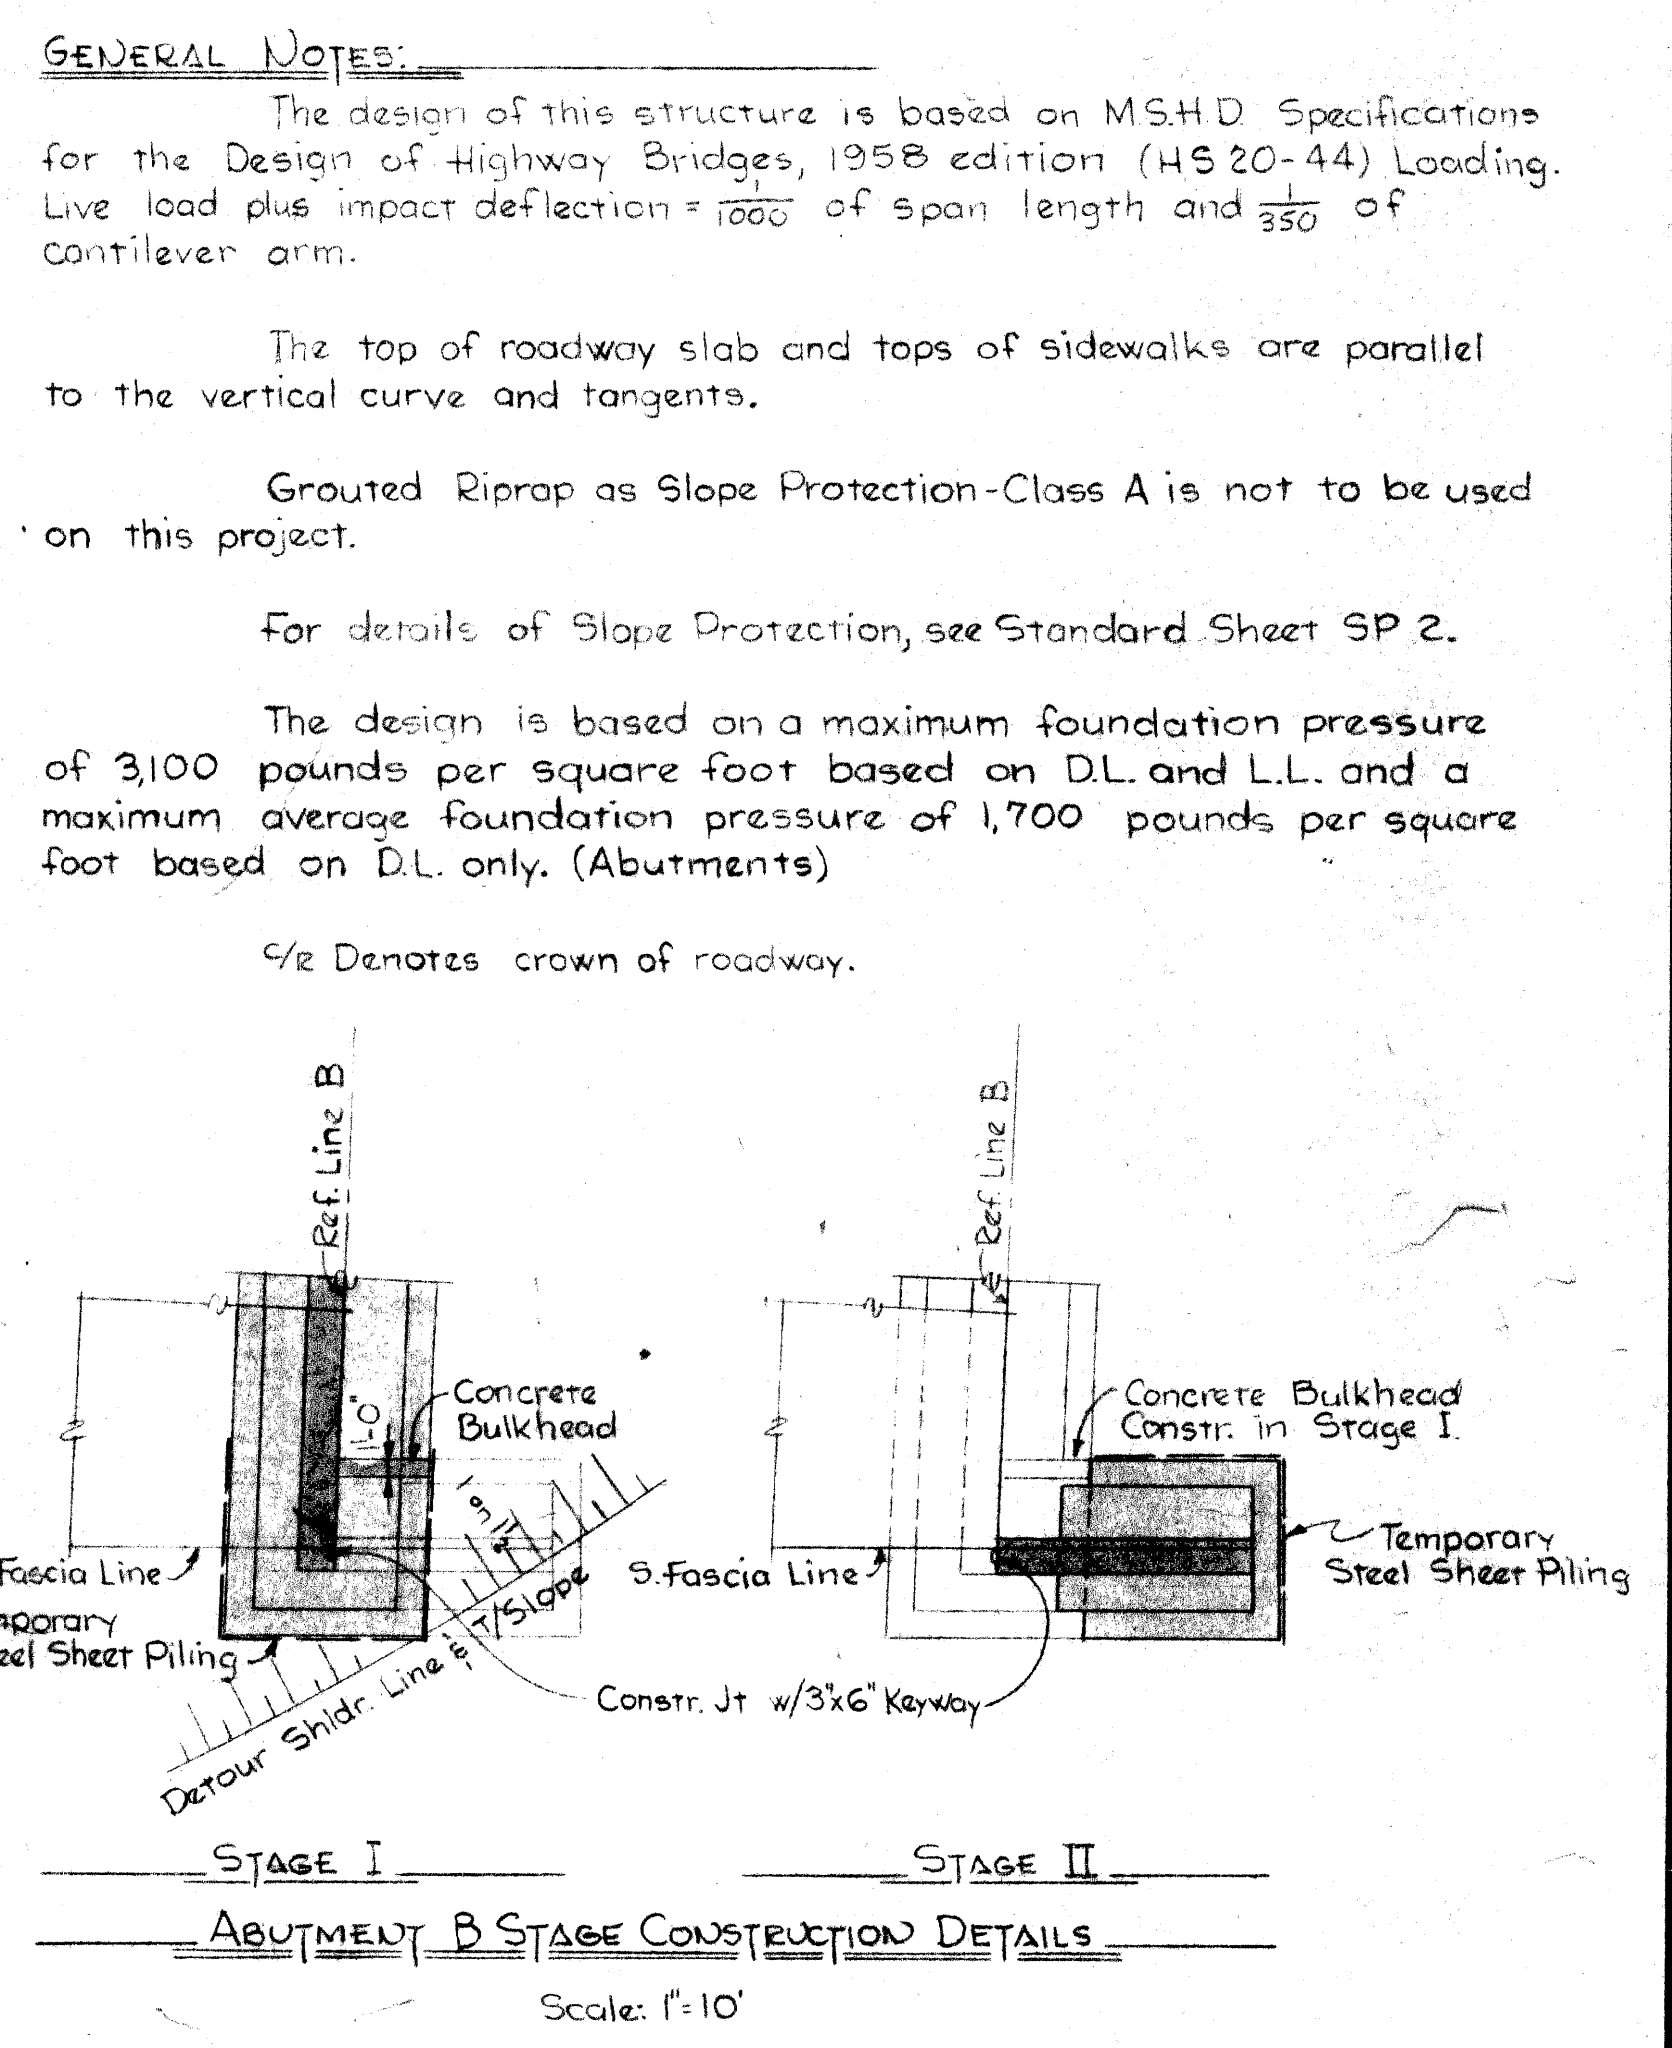 GENERAL NOTES:
The design of this structure is based on M.S.H.D. Specifications
for the Design of Highway Bridges, 1958 edition (HS 20-44) Loading.
Live load plus impact deflection = 1/1000 of span length and 1/350 of
cantilever arm.
The top of roadway slab and tops of sidewalks are parallel
to the vertical curve and tangents.
Grouted Riprap as Slope Protection-Class A is not to be used
on this project.
For details of Slope Protection, see Standard Sheet SP 2.
The design is based on a maximum foundation pressure
of 3,100 pounds per square foot based on D.L. and L.L. and a
maximum average foundation pressure of 1,700 pounds per square
foot based on D.L. only. (Abutments)
C/R Denotes crown of roadway.
Ref. Line B
Ref. Line B
Concrete
Bulkhead
Concrete Bulkhead
Constr. in Stage I.
Fascia Line
S. Fascia Line
Temporary
Steel Sheet Piling
porary
eel Sheet Piling
Detour Shldr. Line & T/Slope
Constr. Jt w/3"x6" Keyway
STAGE I
STAGE II
ABUTMENT B STAGE CONSTRUCTION DETAILS
Scale: 1"=10'